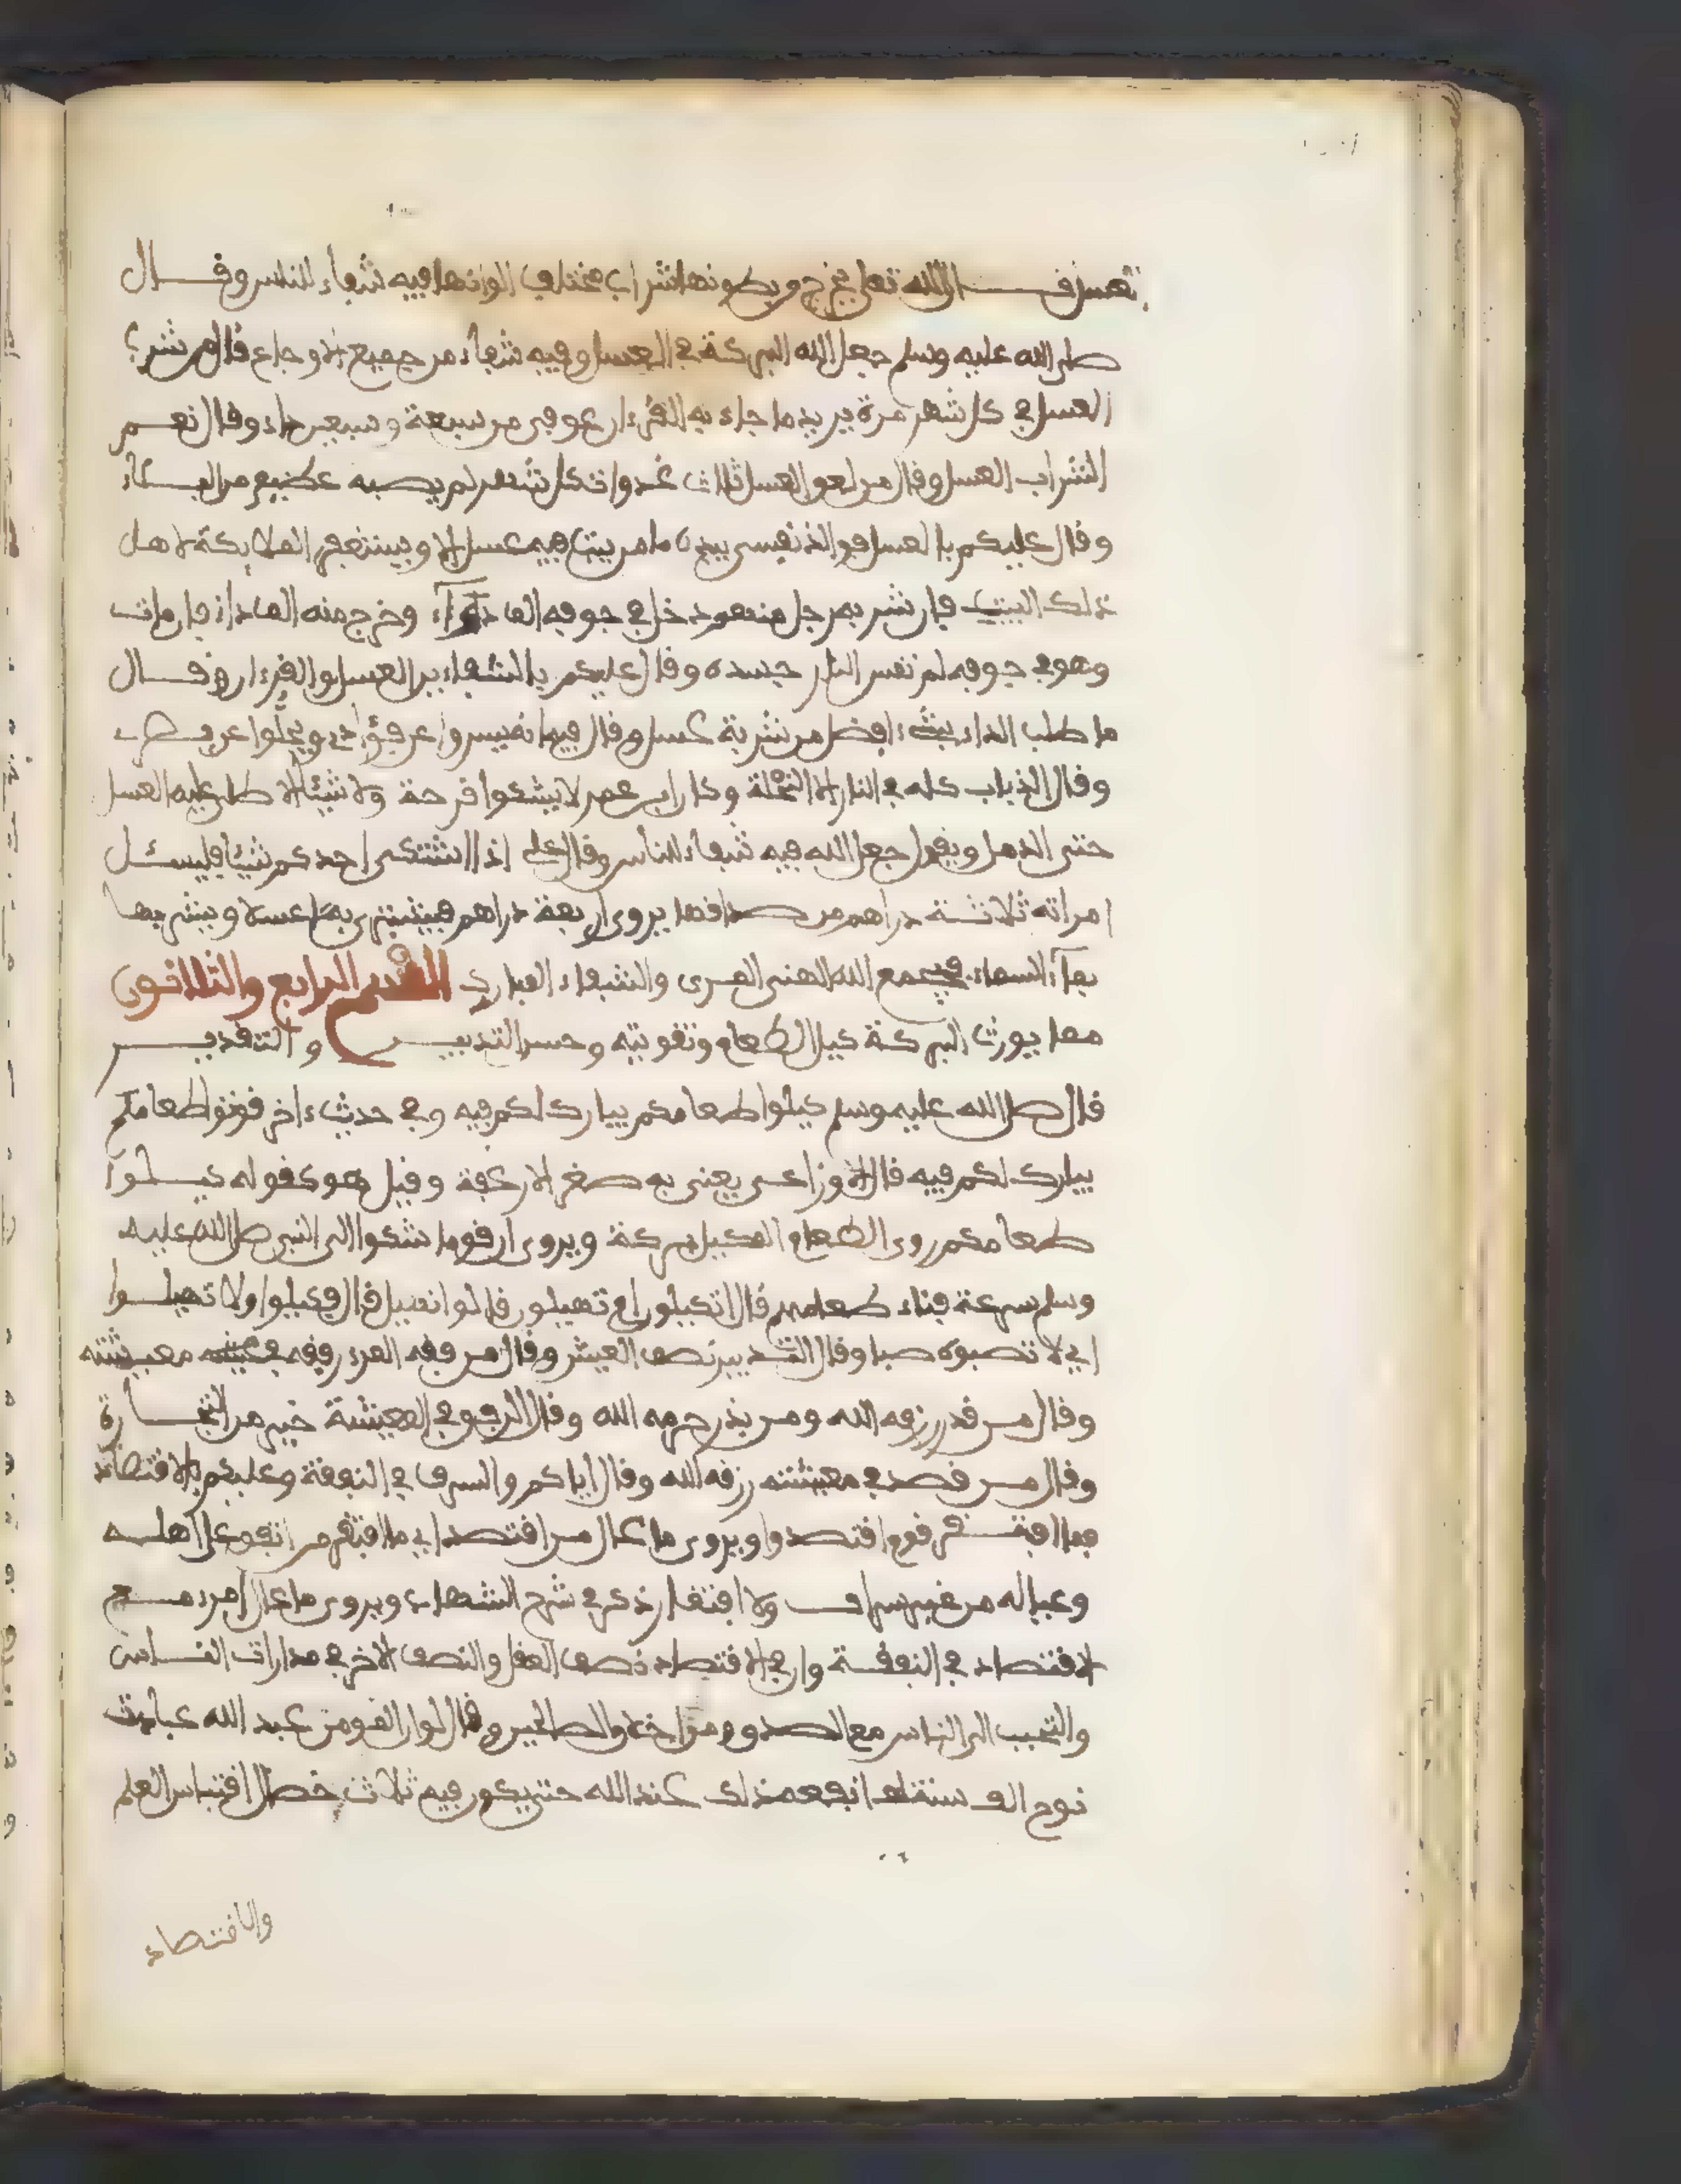 العسل قال الله تعالى يخرج من بطونها شراب مختلف الوانها فيه شفاء للناس وقال
صلى الله عليه وسلم جعل الله البركة في العسل وفيه شفاء من جميع الاوجاع قال من شرب
العسل في كل شهر مرة يريد ما جاء به القرءان عوفي من سبعة وسبعين داء وقال نعم
الشراب العسل وقال من لعق العسل ثلاث غدوات كل شهر لم يصبه عظيم من البلاء
وقال عليكم بالعسل فوالذي نفسي بيده ما من بيت فيه عسل الا ويستغفر الملايكة لاهل
ذلك البيت فان شربه رجل منهم دخل في جوفه الف دواء وخرج منه الف داء فان مات
وهو في جوفه لم تمس النار جسده وقال عليكم بالشفاءين العسل والقرءان وقال
ما طلب الداء بشيء افضل من شربة عسل وقال
وقال الذباب كله في النار الا النحلة وكان ابن عمر لا يشكوا قرحة ولا شيئا الا طلى عليه العسل
حتى الدمل ويقول جعل الله فيه شفاء للناس وقال علي اذا اشتكى احدكم شيئا فليسئل
امراته ثلاثة دراهم من صداقها يروى اربعة دراهم فيشتري به عسلا ويشربها
بماء السماء فيجمع الله الهني المري والشفاء المبارك القسم الرابع والثلاثون
مما يورث البركة كيل الطعام وتقويته وحسن التدبير والتقدير
قال صلى الله عليه وسلم كيلوا طعامكم يبارك لكم فيه وفي حديث ءاخر قوتوا طعامكم
يبارك لكم فيه قال الاوزاعي يعني به صغر الارغفة وقيل هو كقوله كيلوا
طعامكم روى الطعام المكيل بركة ويروى ان قوما شكوا الى النبي صلى الله عليه
وسلم سرعة فناء طعامهم قال اتكيلون ام تهيلون قالوا نهيل قال فكيلوا ولا تهيلوا
اي لا تصبوه صبا وقال التدبير نصف العيش وقال من فقه المرء رفقه في معيشته
وقال من قدر رزقه الله ومن بذر حرمه الله وقال الرفق في المعيشة خير من التجارة
وقال من قصد في معيشته رزقه الله وقال اياكم والسرف في النفقة وعليكم بالاقتصاد
فما افتقر قوم اقتصدوا ويروى ما عال من اقتصد اي ما افتقر من انفق على اهله
وعياله من غير سراف ولا اقتار ذكره في شرح الشهاب ويروى ما عال امرء مع
الاقتصاد في النفقة وان في الاقتصاد نصف العقل والنصف الاخر في مدارات الناس
والتحبب الى الناس مع الصدق ومواخات الصالحين وقال لو ان المؤمن عبد الله عبادت
نوح الف سنة لم ينفعه ذلك عند الله حتى يكون فيه ثلاث خصال اقتباس العلم
والاقتصاد